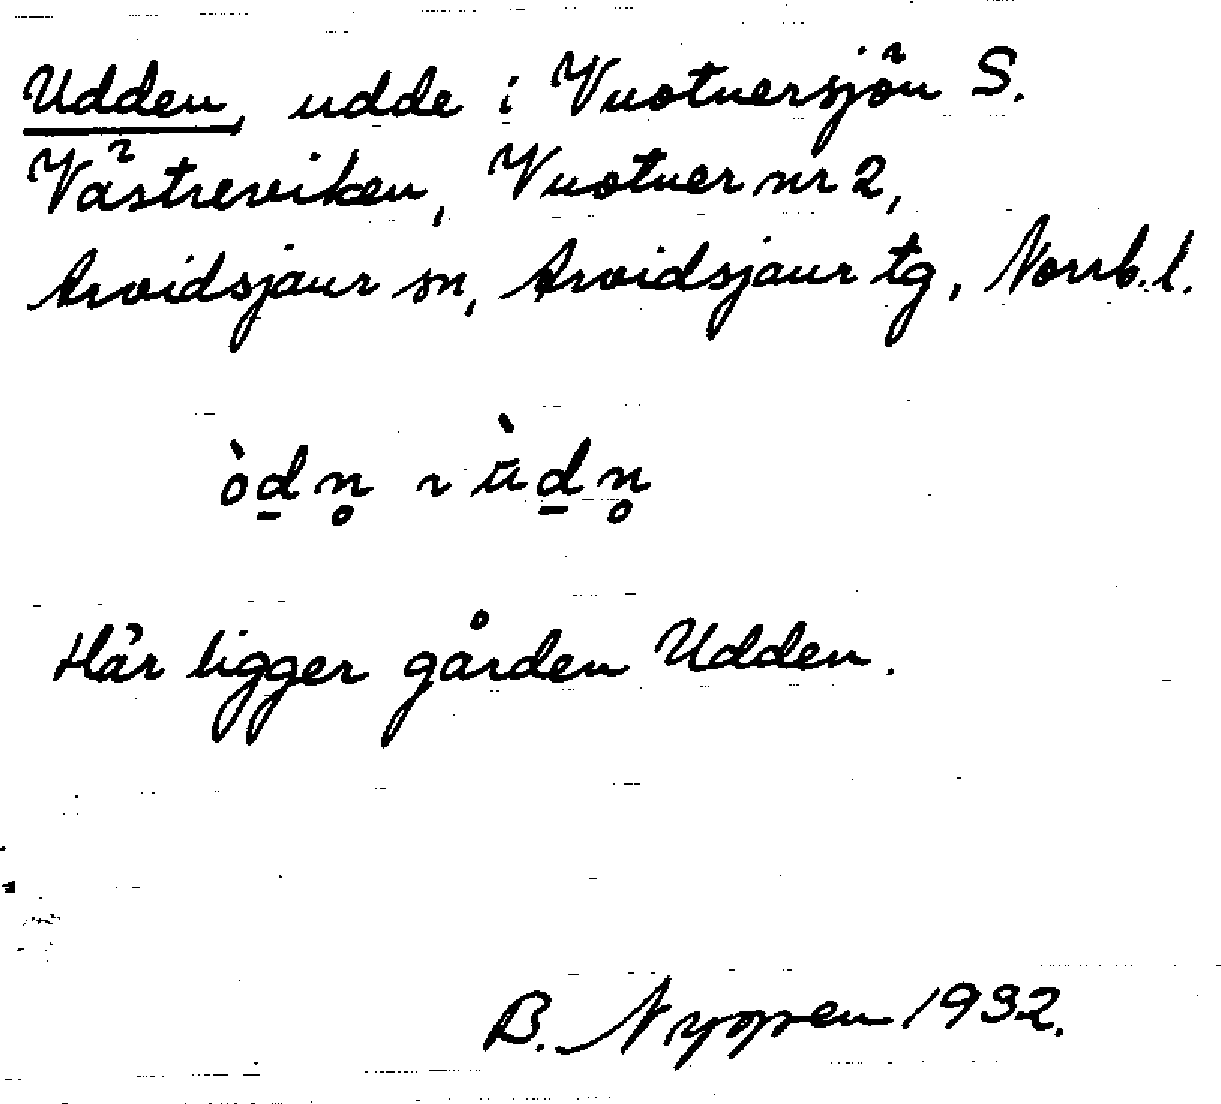 Udden, udde i Vuotnersjön S.
Västreviken, Vuotner nr 2,
Arvidsjaur sn, Arvidsjaur tg, Norrb. l.
òd̲n̥ ~ ùd̲n̥
Här ligger gården Udden.
B. Nyppen 1932.